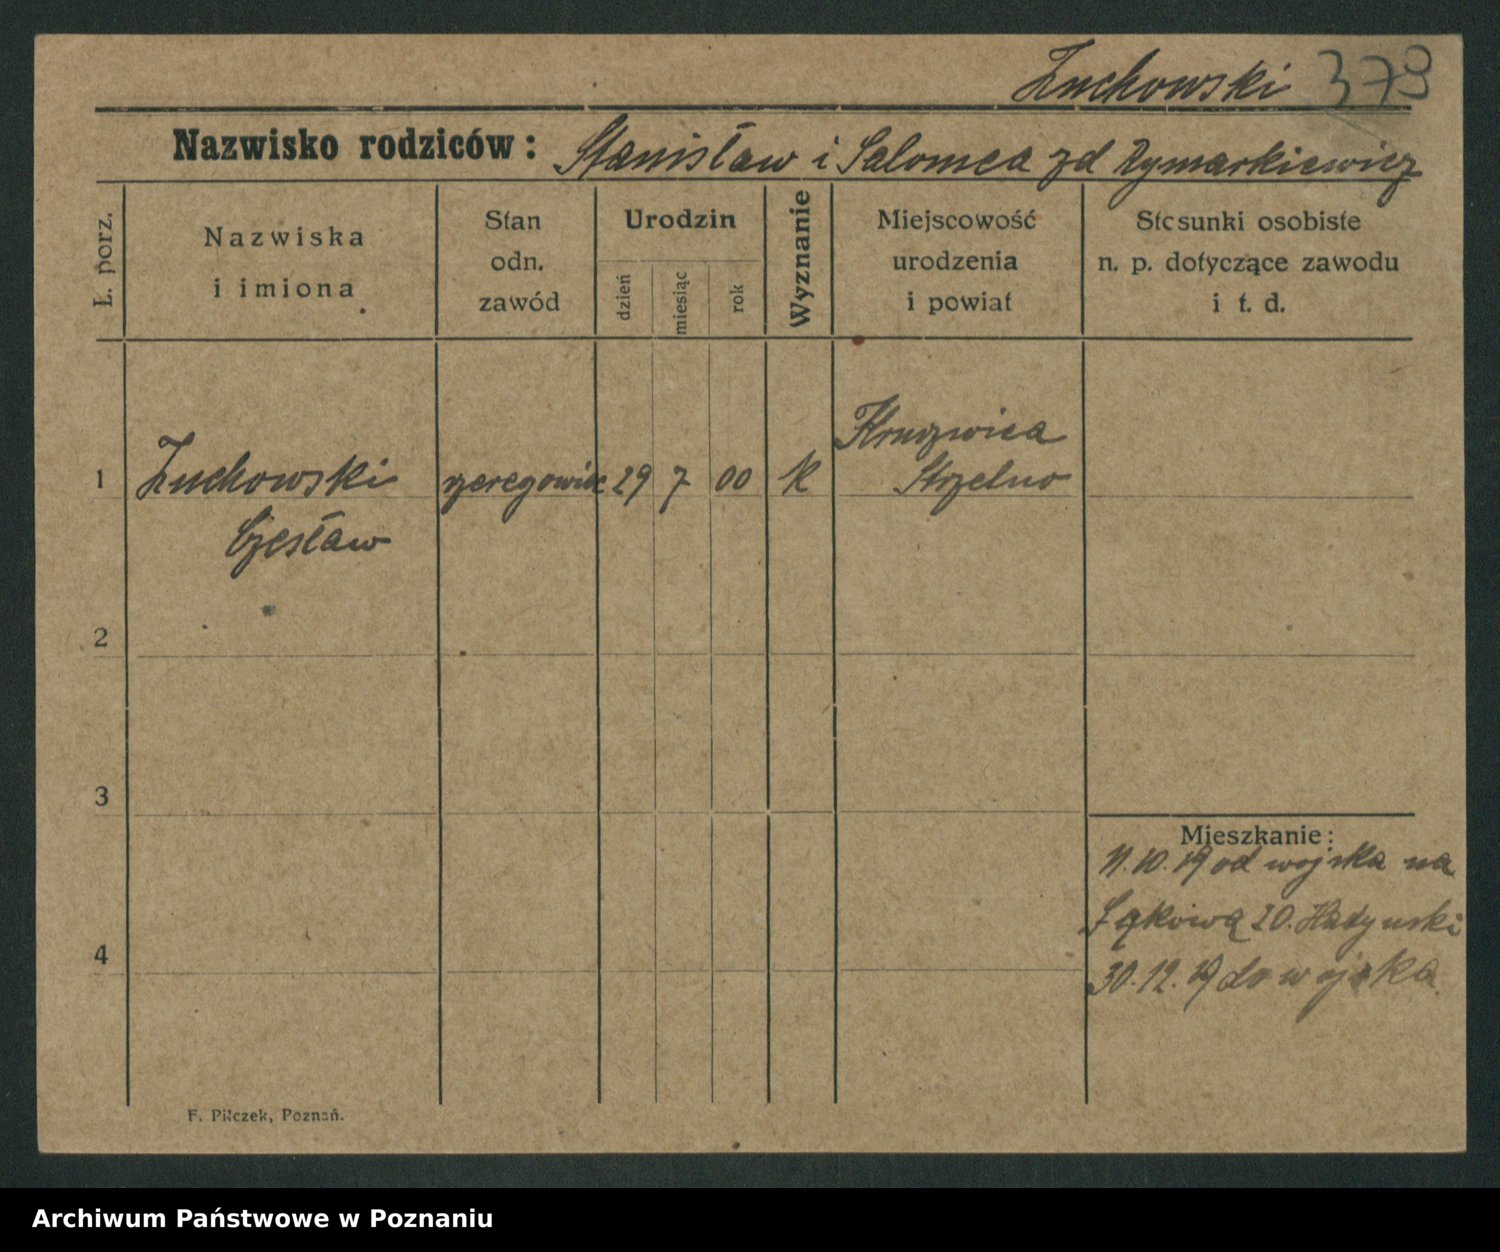 Żuchowski 373
Nazwisko rodziców: Stanisław i Salomea zd Rymarkiewicz
L. porz.
Nazwiska
i imiona
Stan
odn.
zawód
Urodzin
dzień
miesiąc
rok
Wyznanie
Miejscowość
urodzenia
i powiat
Stosunki osobiste
n. p. dotyczące zawodu
i t. d.
1 Żuchowski szeregowiec 29 7 00 k Kruszwica
Strzelno
Czesław
2
3
4
Mieszkanie:
11.10.19 od wojska na
Łąkową 20.
30.12.19 do wojska
F. Pilczek, Poznań.
Archiwum Państwowe w Poznaniu